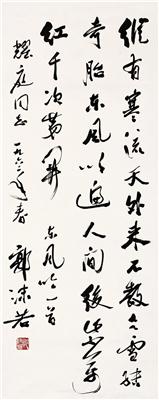 縱有寒流天外来不教冰雪結
奇胎东风吹遍人间後紫万
红千次第开 东风吟一首
耀庭同志 一九六三年春 郭沫若